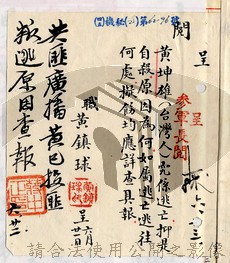 呈
閱
呈
參軍長閱
黃坤雄(台灣人)究係逃亡抑是
自殺原因為何如屬逃亡逃往
何處擬飭均應詳查具報
職黃鎮球
呈
六月
廿一日
共匪廣播黃已投匪
叛逃原因查報
六、廿二
請合法使用公開之影像